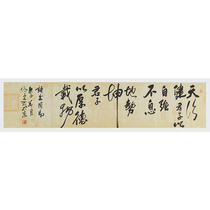 天行
健君子以
自強
不息
地勢
坤
君子
以厚德
載物